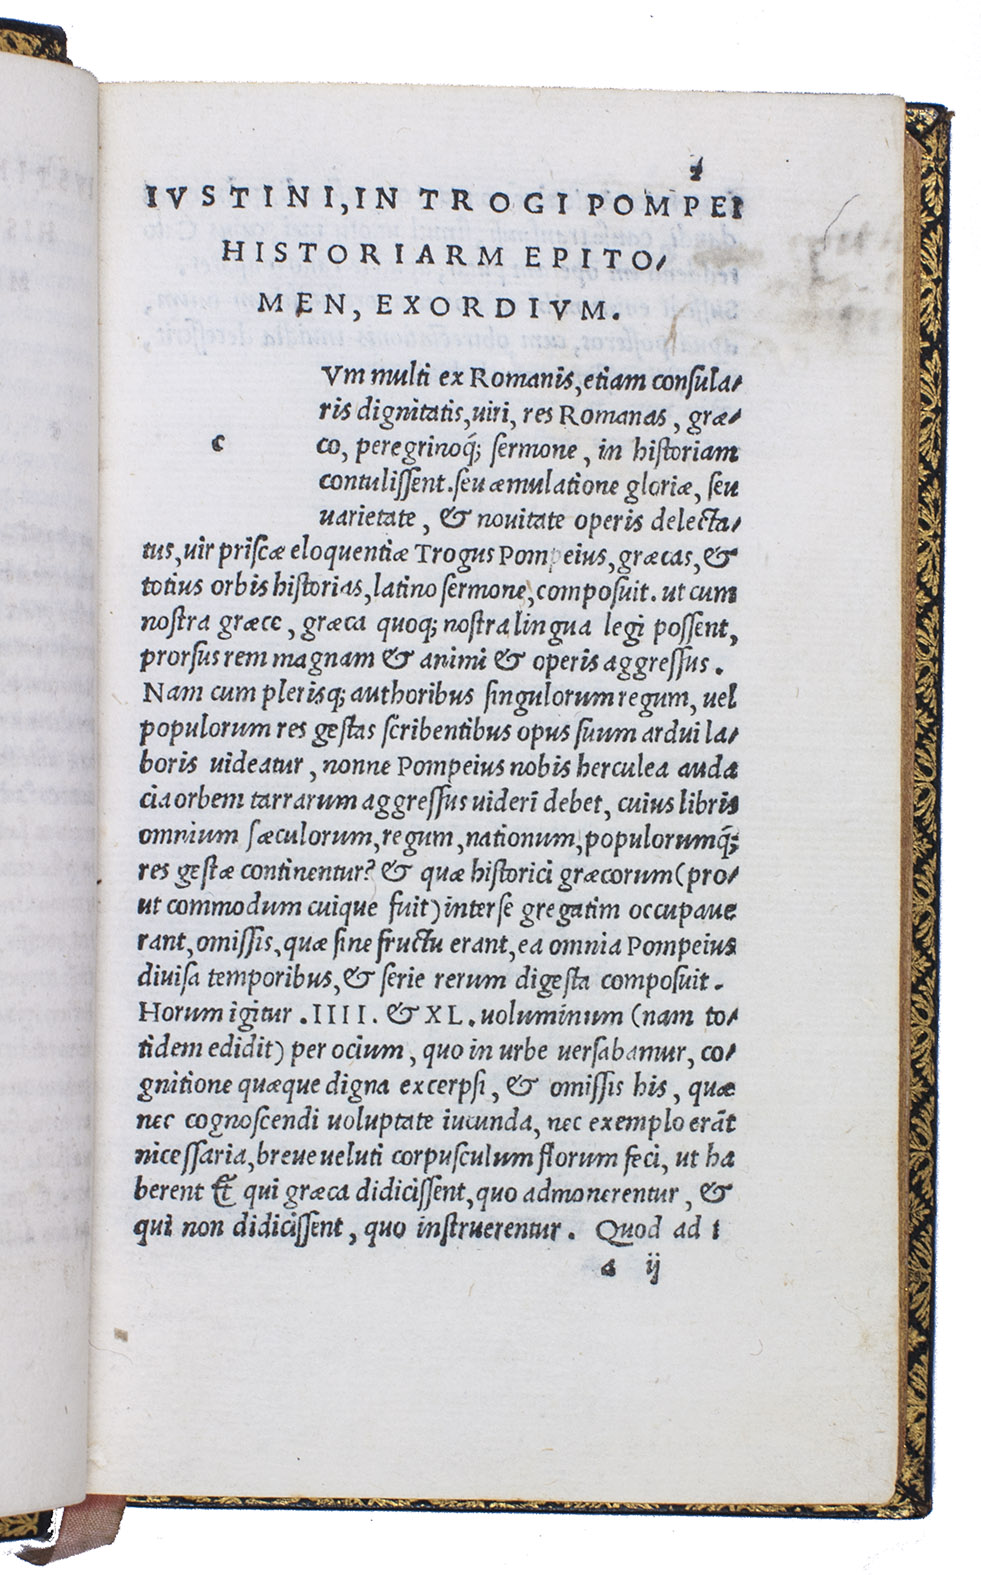 4
IVSTINI, IN TROGI POMPEI
HISTORIARM EPITO/
MEN, EXORDIVM.
Vm multi ex Romanis, etiam consula/
ris dignitatis, uiri, res Romanas, græ/
c
co, peregrinoq́; sermone, in historiam
contulissent. seu æmulatione gloriæ, seu
uarietate, & nouitate operis delecta/
tus, uir priscæ eloquentiæ Trogus Pompeius, græcas, &
totius orbis historias, latino sermone, composuit. ut cum
nostra græce, græca quoq; nostra lingua legi possent,
prorsus rem magnam & animi & operis aggressus.
Nam cum plerisq; authoribus singulorum regum, uel
populorum res gestas scribentibus opus suum ardui la/
boris uideatur, nonne Pompeius nobis herculea auda
cia orbem tarrarum aggressus uideri debet, cuius libris
omnium sæculorum, regum, nationum, populorumq́;
res gestæ continentur? & quæ historici græcorum (pro/
ut commodum cuique fuit) inter se gregatim occupaue
rant, omissis, quæ sine fructu erant, ea omnia Pompeius
diuisa temporibus, & serie rerum digesta composuit.
Horum igitur .IIII. & XL. uoluminum (nam to/
tidem edidit) per ocium, quo in urbe uersabamur, co/
gnitione quæque digna excerpsi, & omissis his, quæ
nec cognoscendi uoluptate iucunda, nec exemplo erãt
nicessaria, breue ueluti corpusculum florum feci, ut ha
berent & qui græca didicissent, quo admonerentur, &
qui non didicissent, quo instruerentur. Quod ad t
a ij